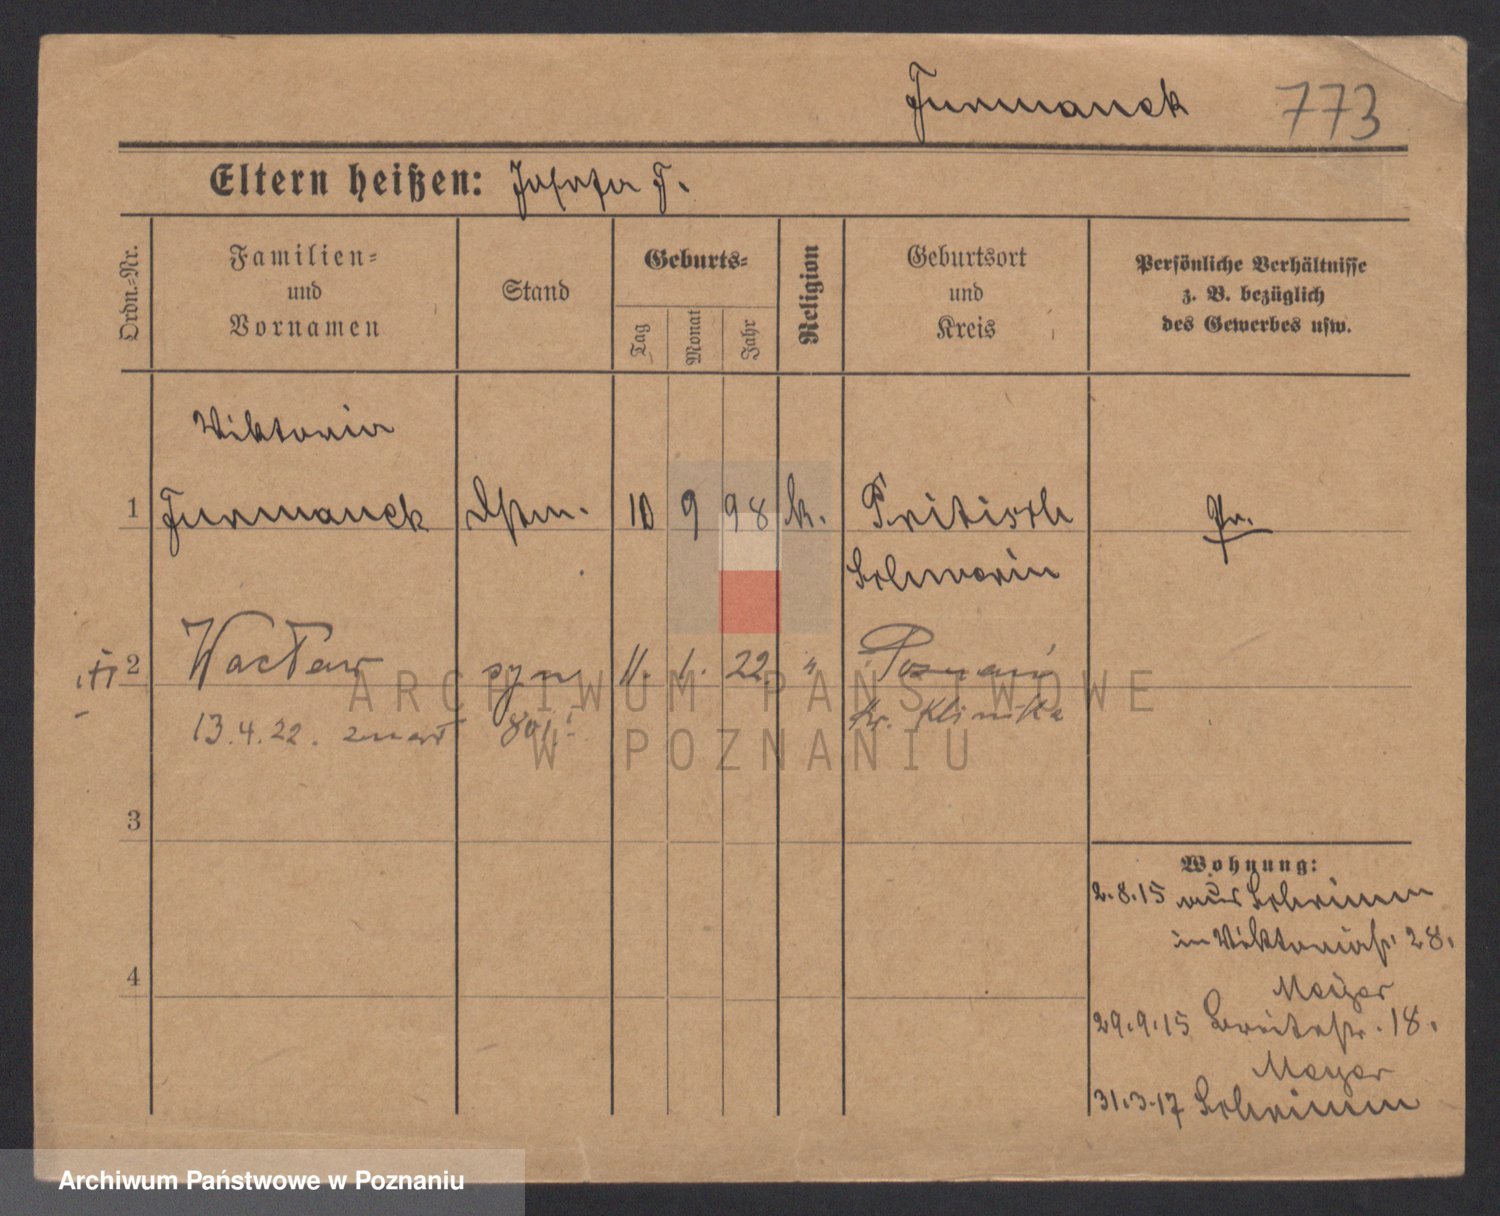 Furmanek 773
Eltern heißen: Josefa F.
Ordn.-Nr.
Familien-
und
Vornamen
Stand
Geburts-
Tag
Monat
Jahr
Religion
Geburtsort
und
Kreis
Persönliche Verhältnisse
z. B. bezüglich
des Gewerbes usw.
Viktoria
1 Furmanek 10 9 98 k. Pritisch Pr.
Schwerin
2 Wacław syn 11. 1. 22. " Poznań
13.4.22. zmarł kr. Klinika
3
4
Wohnung:
2.8.15 aus Schrimm
in Viktoriastr. 28.
Meyer
29.9.15 Breitestr. 18.
Meyer
31.3.17 Schrimm
ARCHIWUM PAŃSTWOWE
W POZNANIU
Archiwum Państwowe w Poznaniu